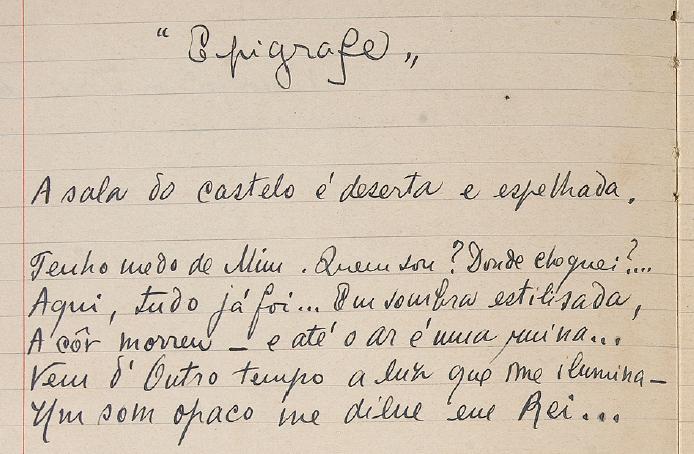 "Epigrafe„
A sala do castelo é deserta e espelhada.
Tenho medo de Mim. Quem sou? Donde cheguei?...
Aqui, tudo já foi... Em sombra estilisada,
A côr morreu — e até o ar é uma ruina...
Vem d'Outro tempo a luz que me ilumina —
Um som opaco me dilue em Rei...